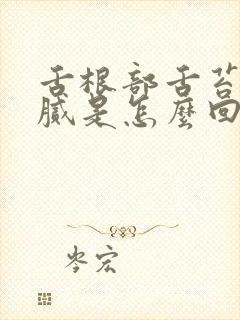 舌根部舌苔
膩是怎麼回
岑宏